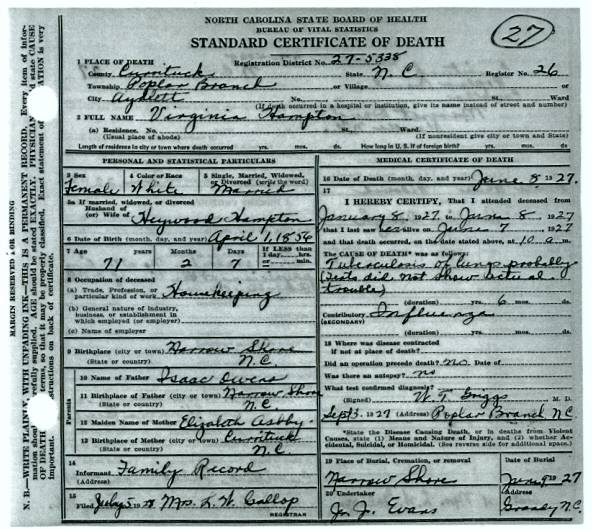 NORTH CAROLINA STATE BOARD OF HEALTH
BUREAU OF VITAL STATISTICS
STANDARD CERTIFICATE OF DEATH
27
1 PLACE OF DEATH
Registration District No. 27-5338
County Currituck State N.C. Register No. 26
Township Poplar Branch or Village
or
City Aydlett No. St. Ward
(If death occurred in a hospital or institution, give its name instead of street and number)
2 FULL NAME Virginia Hampton
(a) Residence. No. St. Ward.
(Usual place of abode) (If nonresident give city or town and State)
Length of residence in city or town where death occurred yrs. mos. ds. How long in U. S. if of foreign birth? yrs. mos. ds.
PERSONAL AND STATISTICAL PARTICULARS
3 Sex 4 Color or Race 5 Single, Married, Widowed, or Divorced (write the word)
Female White Married
5a If married, widowed, or divorced
Husband of
(or) Wife of Heywood Hampton
6 Date of Birth (month, day, and year) April 1, 1856
7 Age If LESS than
1 day, hrs.
or min.
71 2 7
8 Occupation of deceased
(a) Trade, Profession, or
particular kind of work Housekeeping
(b) General nature of industry,
business, or establishment in
which employed (or employer)
(c) Name of employer
9 Birthplace (city or town) Narrow Shore
(State or country) N.C.
Parents
10 Name of Father Isaac Owens
11 Birthplace of Father (city or town) Narrow Shore
(State or country) N.C.
12 Maiden Name of Mother Elizabeth Ashby
13 Birthplace of Mother (city or town) Currituck
(State or country) N.C.
14
Informant Family Record
(Address)
15
Filed July 5 Mrs. L. W. Gallop
REGISTRAR
MEDICAL CERTIFICATE OF DEATH
16 Date of Death (month, day, and year) June 8 1927.
17
I HEREBY CERTIFY, That I attended deceased from
January 8, 1927, to June 8, 1927
that I last saw alive on June 7, 1927
and that death occurred, on the date stated above, at 10 a m.
The CAUSE OF DEATH* was as follows:
Tuberculosis of lungs probably
(Test did not show actual
trouble)
(duration) yrs. 6 mos. ds.
Contributory Influenza
(SECONDARY)
(duration) yrs. mos. ds.
18 Where was disease contracted
if not at place of death?
Did an operation precede death? no Date of
Was there an autopsy? no
What test confirmed diagnosis?
(Signed) W. T. Griggs M. D.
Sept 3. 1927 (Address) Poplar Branch N.C.
*State the Disease Causing Death, or in deaths from Violent
Causes, state (1) Means and Nature of Injury, and (2) whether Accidental, Suicidal, or Homicidal. (See reverse side for additional space).
19 Place of Burial, Cremation, or removal Date of Burial
Narrow Shore 27
20 Undertaker Address
J. Evans Grandy N.C.
MARGIN RESERVED FOR BINDING
N. B.—WRITE PLAINLY, WITH UNFADING INK—THIS IS A PERMANENT RECORD. Every item of information should be carefully supplied. AGE should be stated EXACTLY. PHYSICIANS should state CAUSE OF DEATH in plain terms, so that it may be properly classified. Exact statement of OCCUPATION is very important. See instructions on back of certificate.